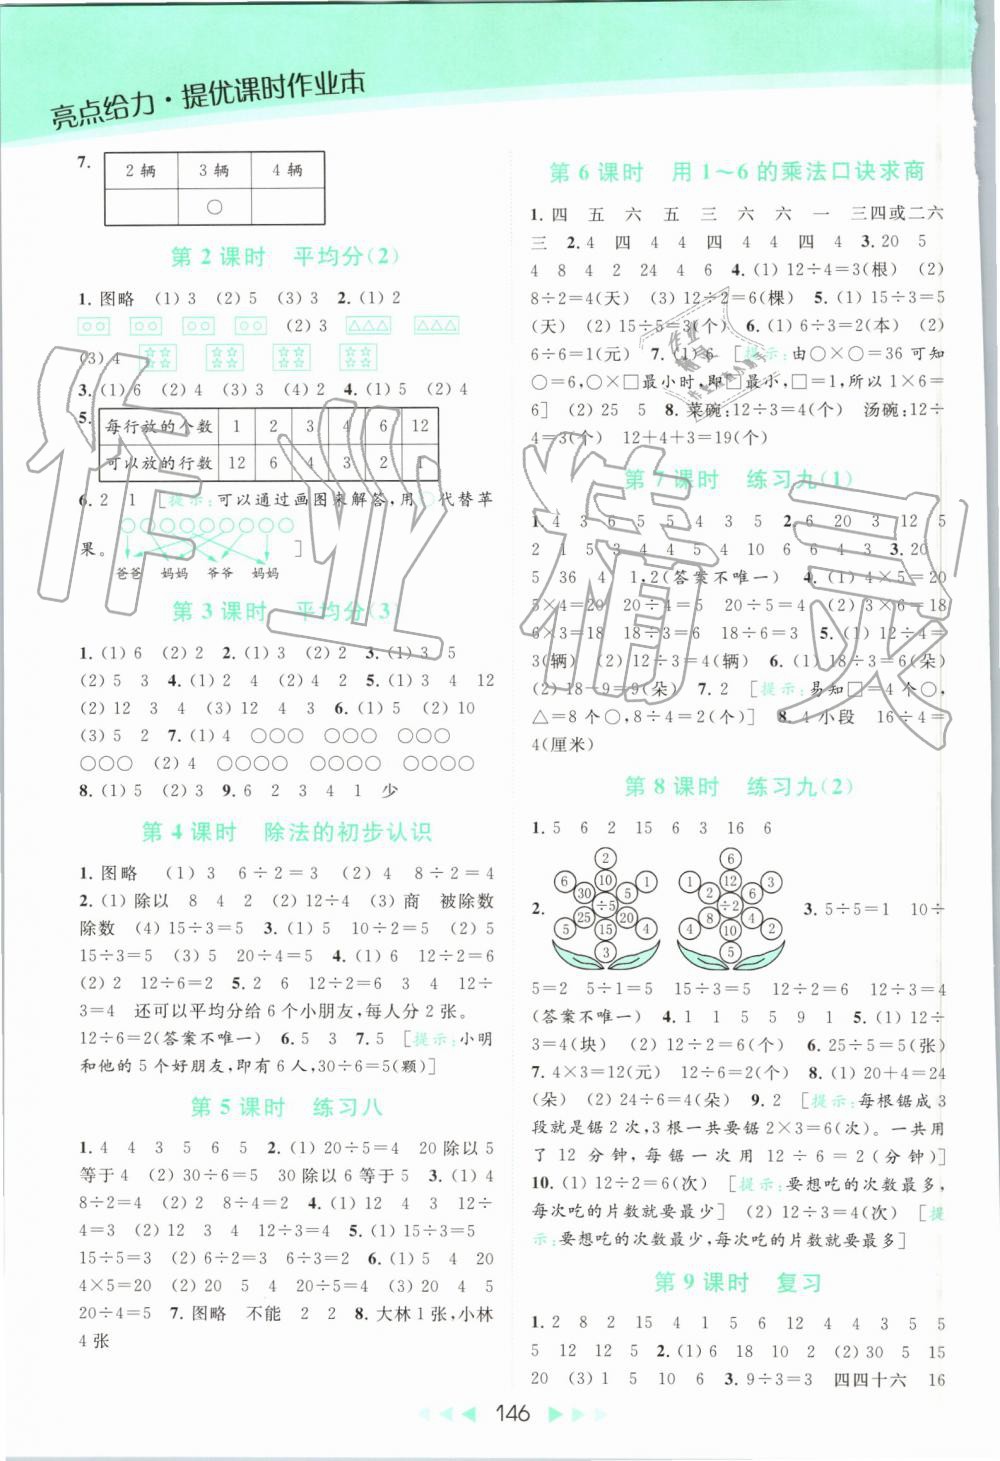 亮点给力·提优课时作业本
7.
2辆 3辆 4辆
○
第2课时 平均分(2)
1. 图略 (1) 3 (2) 5 (3) 3 2. (1) 2
○○ ○○ ○○ ○○ (2) 3 △△△ △△△
(3) 4 ☆☆☆☆ ☆☆☆☆ ☆☆☆☆ ☆☆☆☆
3. (1) 6 (2) 4 (3) 3 (4) 2 4. (1) 5 (2) 4
5.
每行放的个数 1 2 3 4 6 12
可以放的行数 12 6 4 3 2 1
6. 2 1 [提示:可以通过画图来解答,用○代替苹
果。 ○○○○○○○○○ ]
爸爸 妈妈 爷爷 妈妈
第3课时 平均分(3)
1. (1) 6 (2) 2 2. (1) 3 (2) 2 3. (1) 3 5
(2) 5 3 4. (1) 2 (2) 2 5. (1) 3 4 12
(2) 12 3 4 (3) 12 4 3 6. (1) 5 (2) 10
(3) 5 2 7. (1) 4 ○○○ ○○○ ○○○
○○○ (2) 4 ○○○○ ○○○○ ○○○○
8. (1) 5 (2) 3 9. 6 2 3 4 1 少
第4课时 除法的初步认识
1. 图略 (1) 3 6÷2=3 (2) 4 8÷2=4
2. (1) 除以 8 4 2 (2) 12÷4 (3) 商 被除数
除数 (4) 15÷3=5 3. (1) 5 10÷2=5 (2) 5
15÷3=5 (3) 5 20÷4=5 4. (1) 6 12÷2=6
(2) 2 12÷6=2 5. 2 6 12÷2=6 3 4 12÷
3=4 还可以平均分给6个小朋友,每人分2张。
12÷6=2(答案不唯一) 6. 5 3 7. 5 [提示:小明
和他的5个好朋友,即有6人,30÷6=5(颗)]
第5课时 练习八
1. 4 4 3 5 6 5 2. (1) 20÷5=4 20除以5
等于4 (2) 30÷6=5 30除以6等于5 3. (1) 4
8÷2=4 (2) 2 8÷4=2 4. (1) 12 4 3 12÷
4=3 (2) 12 3 4 12÷3=4 5. (1) 15÷3=5
15÷5=3 (2) 12÷4=3 12÷3=4 6. (1) 5 4 20
4×5=20 (2) 20 5 4 20÷5=4 (3) 20 4 5
20÷4=5 7. 图略 不能 2 2 8. 大林1张,小林
4张
第6课时 用1~6的乘法口诀求商
1. 四 五 六 五 三 六 六 一 三四或二六
三 2. 4 四 4 4 四 4 4 四 4 3. 20 5
4 8 4 2 24 4 6 4. (1) 12÷4=3(根) (2)
8÷2=4(天) (3) 12÷2=6(棵) 5. (1) 15÷3=5
(天) (2) 15÷5=3(个) 6. (1) 6÷3=2(本) (2)
6÷6=1(元) 7. (1) 6 [提示:由○×○=36可知
○=6,○×□最小时,即□最小,□=1,所以1×6=
6] (2) 25 5 8. 菜碗:12÷3=4(个) 汤碗:12÷
4=3(个) 12+4+3=19(个)
第7课时 练习九(1)
1. 4 3 6 5 5 4 3 5 2. 6 20 3 12 5
2 1 5 3 4 4 5 4 10 6 6 4 4 3 3. 20
5 36 4 1,2(答案不唯一) 4. (1) 4×5=20
5×4=20 20÷4=5 20÷5=4 (2) 3×6=18
6×3=18 18÷3=6 18÷6=3 5. (1) 12÷4=
3(辆) (2) 12÷3=4(辆) 6. (1) 18÷3=6(朵)
(2) 18-9=9(朵) 7. 2 [提示:易知□=4个○,
△=8个○,8÷4=2(个)] 8. 4小段 16÷4=
4(厘米)
第8课时 练习九(2)
1. 5 6 2 15 6 3 16 6
2.
2 6 10 1 30 5 ÷5 25 20 5 15 4 3
6 6 12 3 12 6 ÷2 8 4 4 10 2 5
3. 5÷5=1 10÷
5=2 5÷1=5 15÷3=5 12÷2=6 12÷3=4
(答案不唯一) 4. 1 1 5 5 9 1 5. (1) 12÷
3=4(块) (2) 12÷2=6(个) 6. 25÷5=5(张)
7. 4×3=12(元) 12÷6=2(个) 8. (1) 20+4=24
(朵) (2) 24÷6=4(朵) 9. 2 [提示:每根锯成3
段就是锯2次,3根一共要锯2×3=6(次)。一共用
了12分钟,每锯一次用12÷6=2(分钟)]
10. (1) 12÷2=6(次) [提示:要想吃的次数最多,
每次吃的片数就要最少] (2) 12÷3=4(次) [提
示:要想吃的次数最少,每次吃的片数就要最多]
第9课时 复习
1. 2 8 2 15 4 1 5 6 12 4 4 3 5 5
5 12 12 5 2. (1) 6 18 10 2 (2) 30 5 15
20 (3) 1 5 10 6 3. 9÷3=3 四四十六 16
146
作业精灵